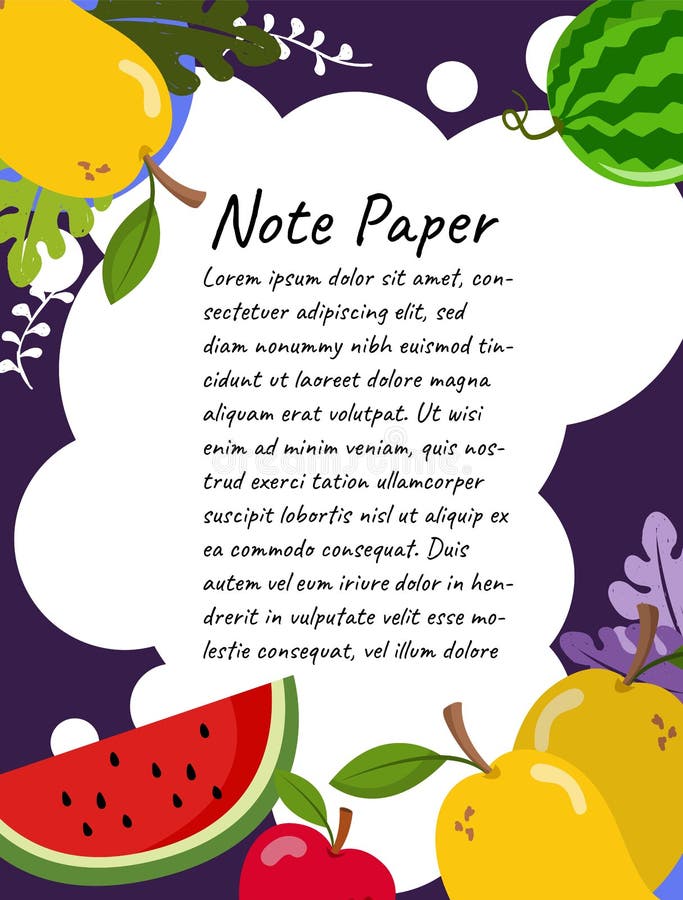 Note Paper
Lorem ipsum dolor sit amet, con-
sectetuer adipiscing elit, sed
diam nonummy nibh euismod tin-
cidunt ut laoreet dolore magna
aliquam erat volutpat. Ut wisi
enim ad minim veniam, quis nos-
trud exerci tation ullamcorper
suscipit lobortis nisl ut aliquip ex
ea commodo consequat. Duis
autem vel eum iriure dolor in hen-
drerit in vulputate velit esse mo-
lestie consequat, vel illum dolore